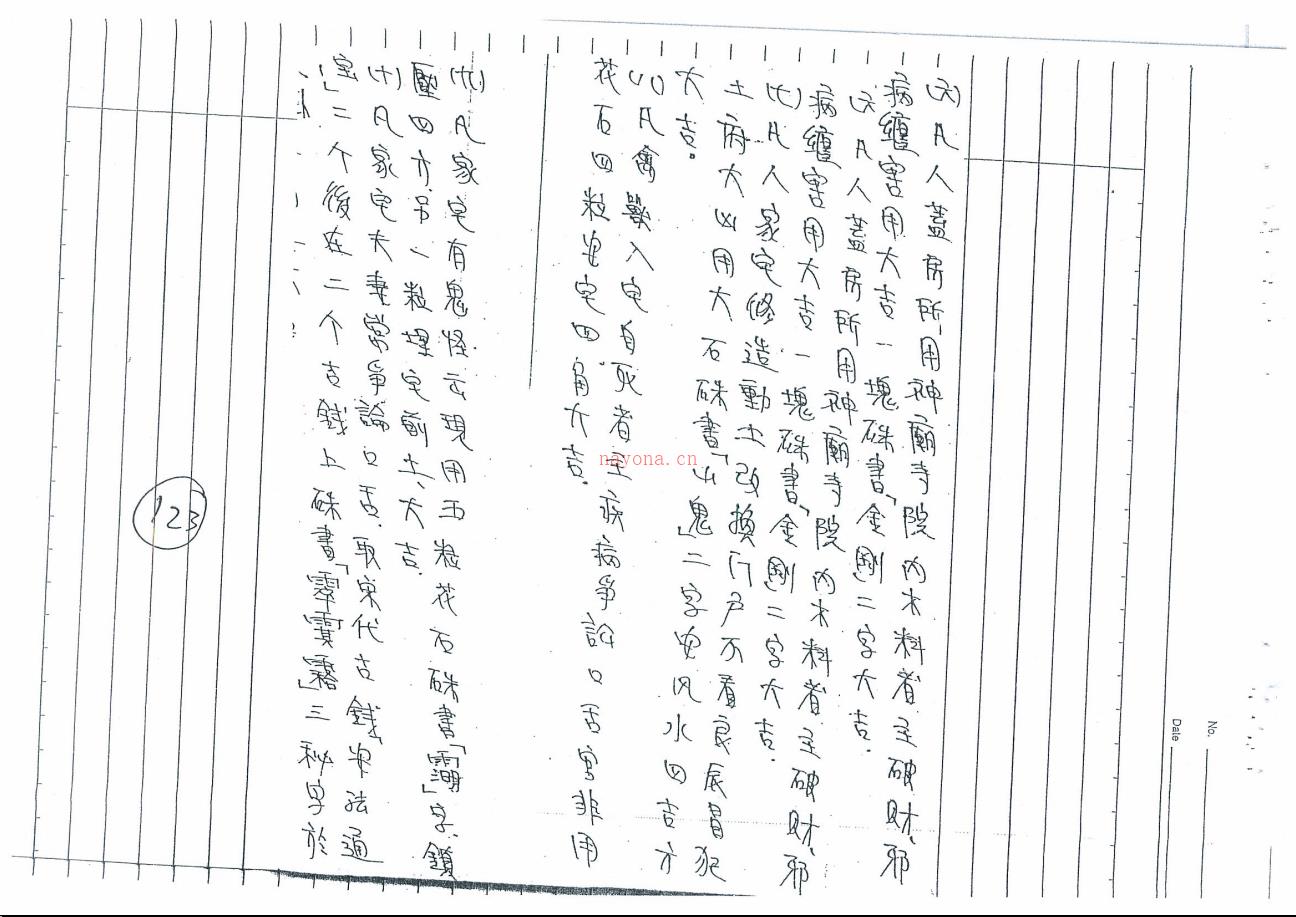 (六)凡人蓋房所用神廟寺院內木料者主破財、邪
病纏害用大吉一塊硃書「金剛二字大吉.
(六)凡人蓋房所用神廟寺院內木料者主破財、邪
病纏害用大吉一塊硃書「金剛二字大吉.
(七)凡人家宅修造動土改換门户不看良辰冒犯
土府大凶用大石硃書「山鬼」二字安风水四吉方
大吉.
(八)凡禽獸入宅自死者主疾病爭訟口舌官非用
花石四粒安宅四角大吉.
(九)凡家宅有鬼怪云現用五粒花石硃書「」字.鎮
壓四方.吊一粒埋宅前土、大吉.
(十)凡家宅夫妻常爭論口舌.取宋代古錢安法通
宝」二个後在二个古錢上硃書「」三秘字於
123
No.
Date
nayona.cn